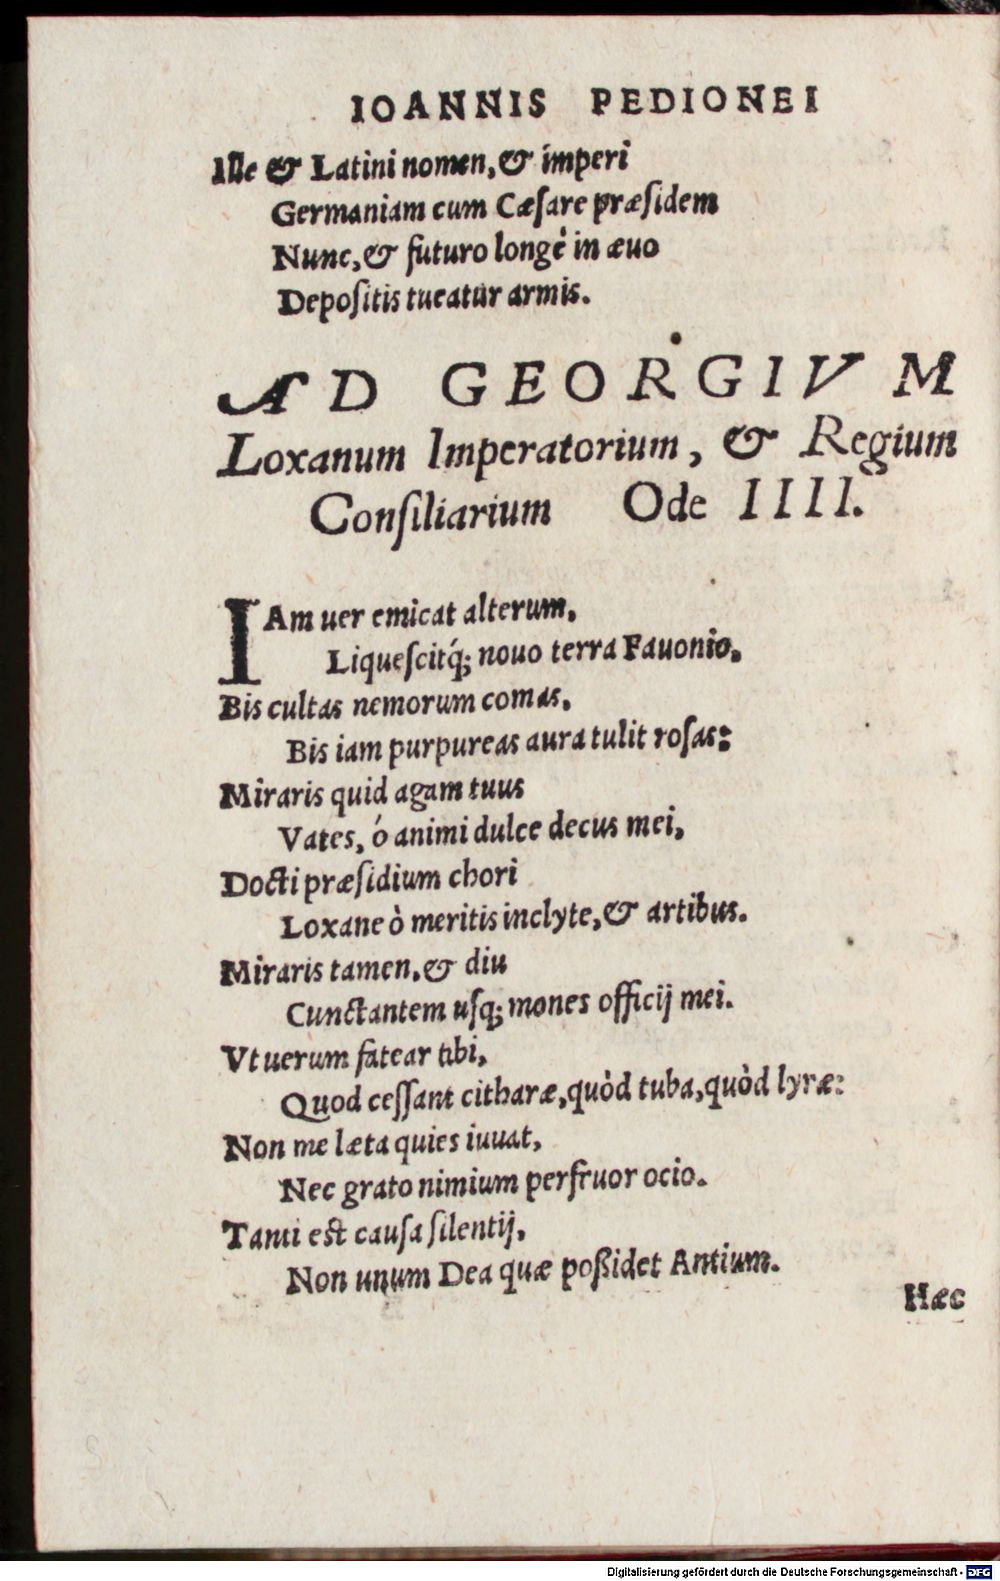 IOANNIS PEDIONEI
Ille & Latini nomen, & imperi
Germaniam cum Cæſare præſidem
Nunc, & futuro longè in æuo
Depoſitis tueatur armis.
AD GEORGIVM
Loxanum Imperatorium, & Regium
Conſiliarium Ode IIII.
IAm uer emicat alterum,
Liqueſcitq́; nouo terra Fauonio.
Bis cultas nemorum comas,
Bis iam purpureas aura tulit roſas:
Miraris quid agam tuus
Vates, ó animi dulce decus mei,
Docti præſidium chori
Loxane ò meritis inclyte, & artibus.
Miraris tamen, & diu
Cunctantem uſq; mones officij mei.
Vt uerum fatear tibi,
Quod ceſſant citharæ, quòd tuba, quòd lyræ:
Non me læta quies iuuat,
Nec grato nimium perfruor ocio.
Tanti est cauſa ſilentij,
Non unum Dea quæ poßidet Antium.
Hæc
Digitalisierung gefördert durch die Deutsche Forschungsgemeinschaft - DFG